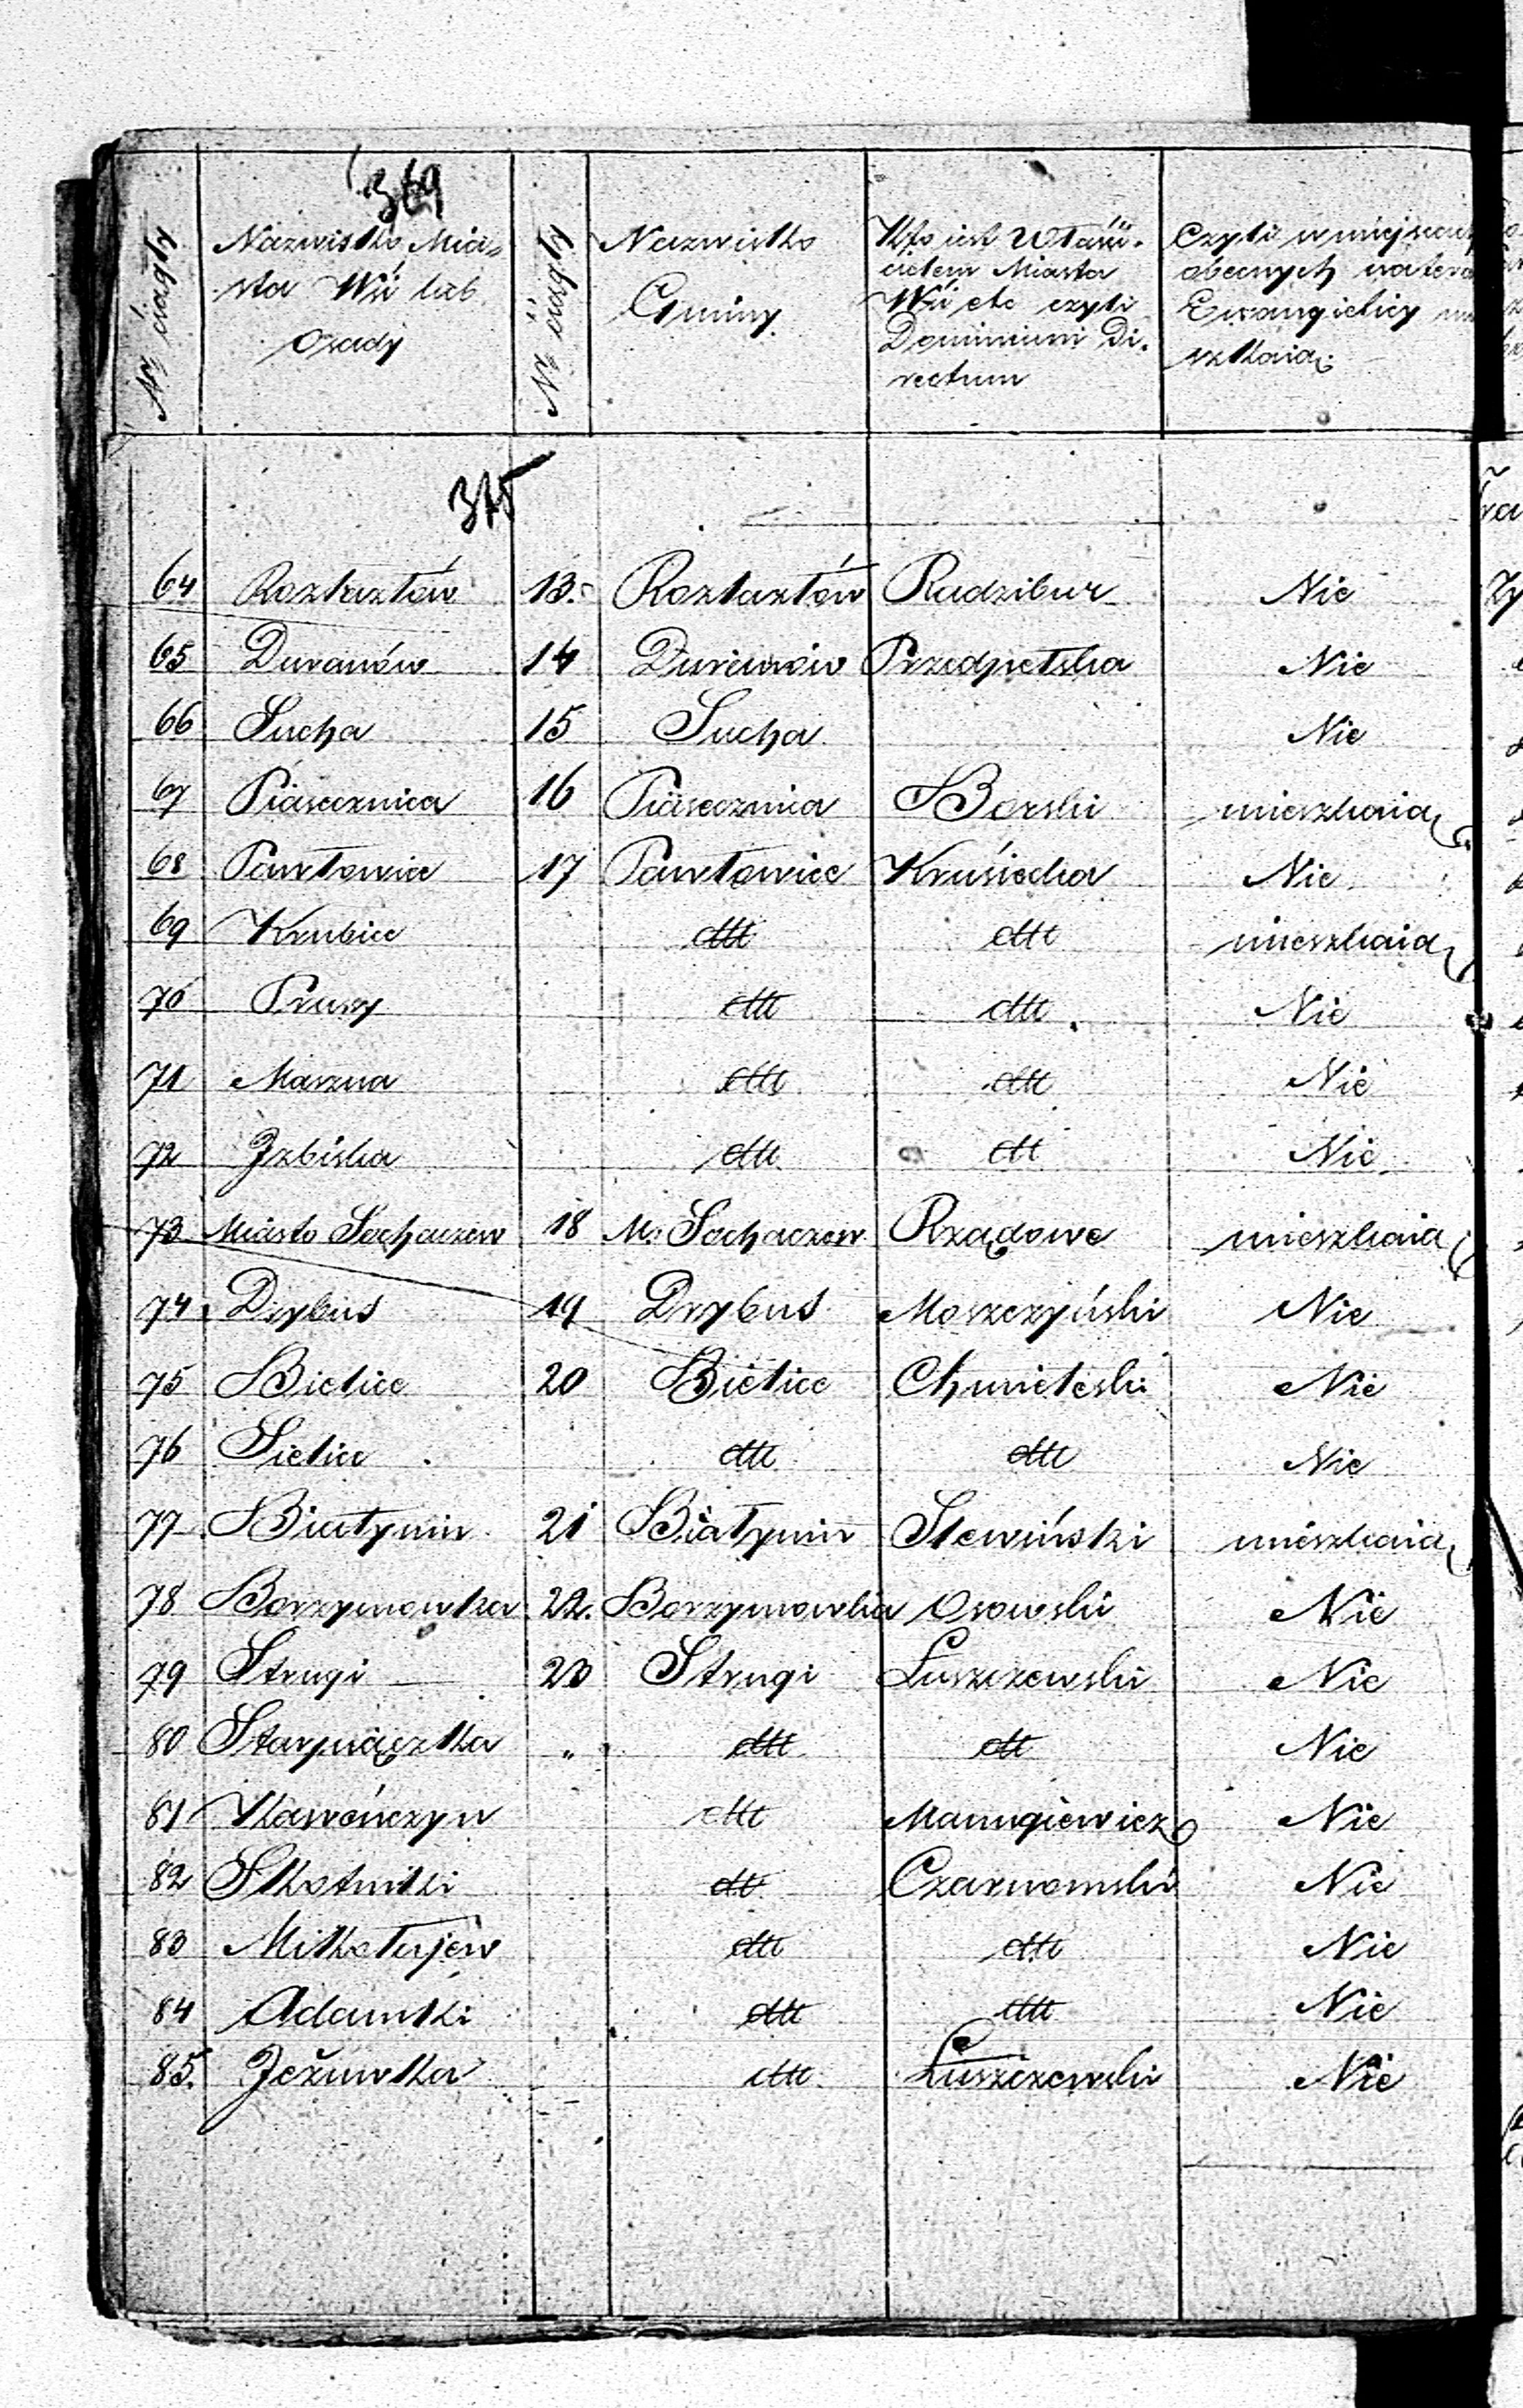 369
Nr ciągły
Nazwisko Mia-
sta Wsi lub
Osady
Nr ciągły
Nazwisko
Gminy
Kto iest Właści-
cielem Miasta
Wsi etc czyli
Dominium Di-
rectum
Czyli w miejscach
obecnych
Ewangielicy
szkaią.
375
64 Rozłazłów 13. Rozłazłów Radzibur Nie
65 Duranów 14 Duranów Przedpełska Nie
66 Sucha 15 Sucha Nie
67 Piasecznica 16 Piasecznica Borski mieszkaią
68 Pawłowice 17 Pawłowice Kruśiecka Nie
69 Krubice dtt dtt mieszkaią
70 Prusy dtt dtt Nie
71 Maszna dtt dtt Nie
72 Jzbiska dtt dtt Nie
73 Miasto Sochaczew 18 Mo Sochaczew Rządowe mieszkaią
74 Drybus 19 Drybus Moszczyński Nie
75 Bielice 20 Bielice Chmieleski Nie
76 Sielice dtt dtt Nie
77 Białynin 21 Białynin Slewiński mieszkaią
78 Borzymowka 22. Borzymowka Osowski Nie
79 Strugi 23 Strugi Łuszczewski Nie
80 " dtt dtt Nie
81 Kawończyn dtt Manngiewicz Nie
82 Skotniki dtt Czarnomski Nie
83 Mikołajew dtt dtt Nie
84 Adamki dtt dtt Nie
85. Jeżuwka dtt Łuszczewski Nie